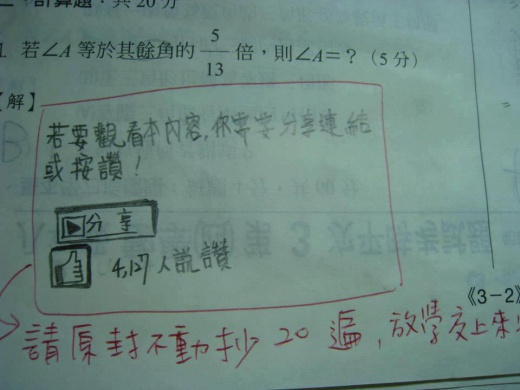 計算題：共20分
1. 若∠A等於其餘角的 5/13 倍，則∠A=？（5分）
【解】
若要觀看本內容，你需要分享連結
或按讚！
分享
4,127人說讚
《3-2》
請原封不動抄20遍，放學交上來